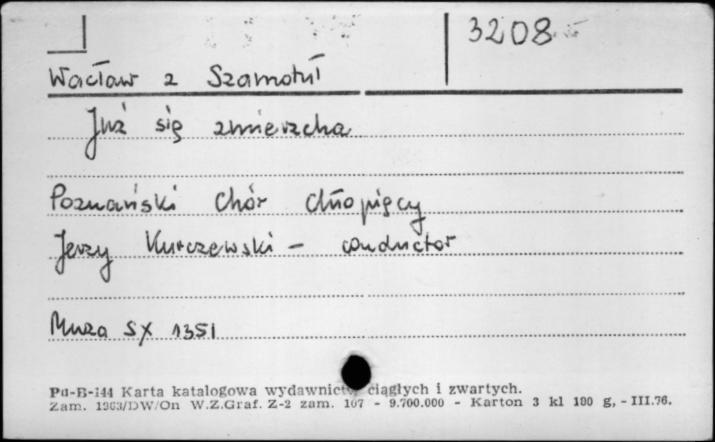 3208
Wacław z Szamotuł
Już się zmierzcha
Poznański Chór Chłopięcy
Jerzy Kurczewski - conductor
Muza SX 1351
Pu-B-144 Karta katalogowa wydawnictw ciągłych i zwartych.
Zam. 1963/DW/On W.Z.Graf. Z-2 zam. 107 - 9.700.000 - Karton 3 kl 180 g, - III.76.